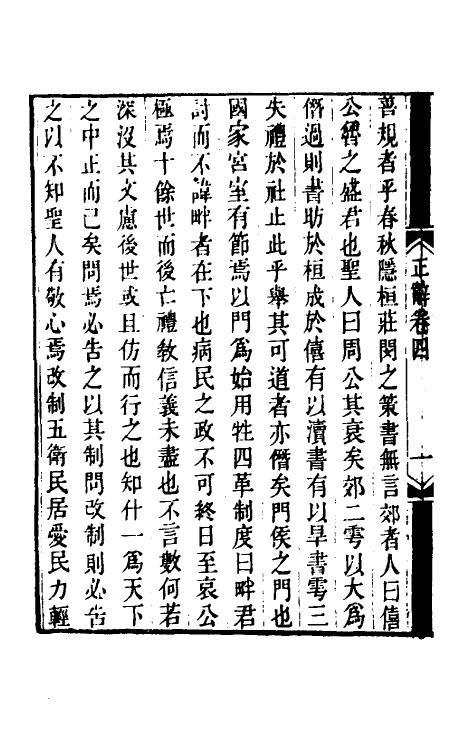 善規者乎春秋隱桓莊閔之策書無言郊者人曰僖
公魯之盛君也聖人曰周公其衰矣郊二雩以大爲
僭過則書助於桓成於僖有以瀆書有以旱書雩三
失禮於社止此乎舉其可道者亦僭矣門侯之門也
國家宮室有節焉以門爲始用牲四革制度曰畔君
討而不諱畔者在下也病民之政不可終日至哀公
極焉十餘世而後亡禮敎信義未盡也不言數何若
深沒其文慮後世或且仿而行之也知什一爲天下
之中正而已矣問焉必告之以其制問改制則必告
之以不知聖人有敬心焉改制五衛民居愛民力輕
正辭卷四
一